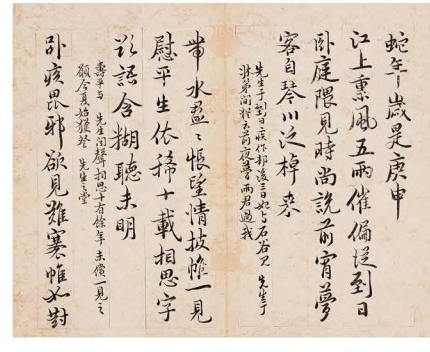 蛇年歲是庚申
江上熏風五兩催偏遲到日
臥庭隈見時尚說前宵夢
客自琴川泛棹來
先生于到日疾作卻後三日始與石谷 先生于
牀第間猶云前夜夢兩君過我
帶水盈〻悵望情披帷一見
慰平生依稀十載相思字
欲語含糊聽未明
壽平與 先生聞聲相思十有餘年未償一見之
願今夏始獲登 先生之堂
臥疾畏邪欲見難褰帷如對